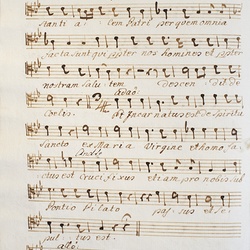 stanti al: tem Patri per quem omnia
facta sunt qui propter nos homines et propter
nostram salu tem descen dit de
Coelis. Adag.o Et Incarnatus est de Spiritu
Sancto ex Maria Virgine et homo fa:
ctus est Crucifixus etiam pro nobis sub
Pontio Pilato pas: sus et se:
pul: tus est.